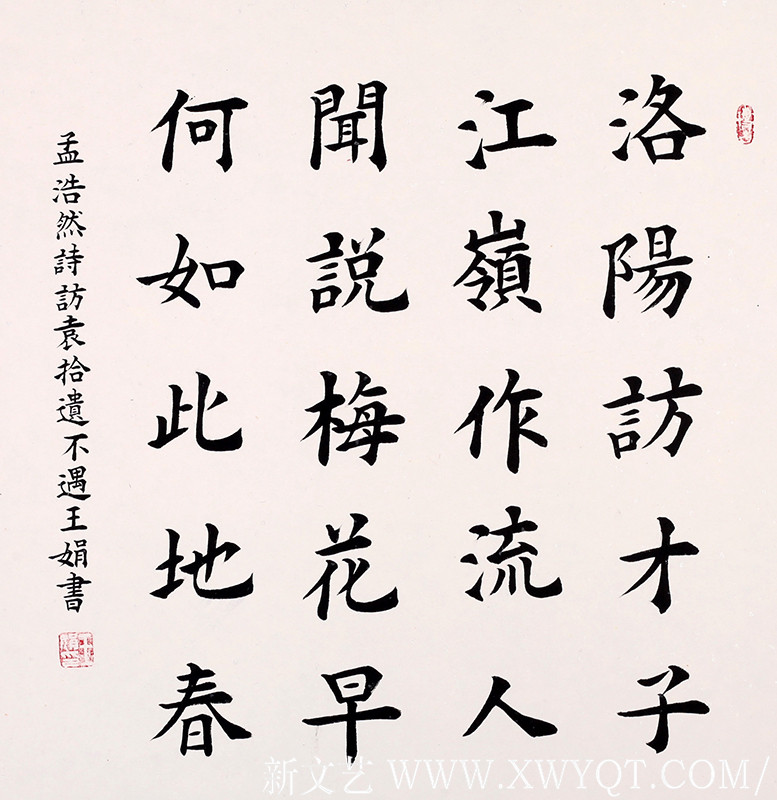 洛陽訪才子
江嶺作流人
聞説梅花早
何如此地春
孟浩然詩訪袁拾遺不遇王娟書
新文艺 WWW.XWYQT.COM/